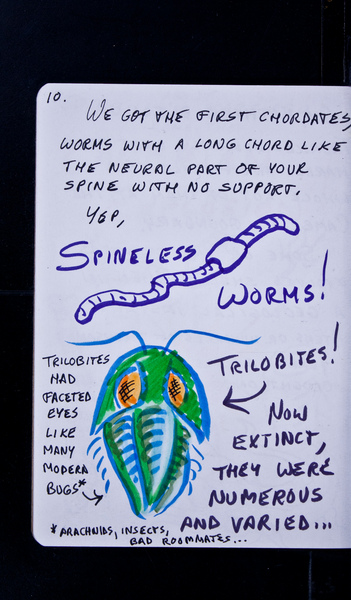 10.
WE GOT THE FIRST CHORDATES,
WORMS WITH A LONG CHORD LIKE
THE NEURAL PART OF YOUR
SPINE WITH NO SUPPORT.
YEP,
SPINELESS
WORMS!
TRILOBITES
HAD
FACETED
EYES
LIKE
MANY
MODERN
BUGS*
TRILOBITES!
NOW
EXTINCT,
THEY WERE
NUMEROUS
AND VARIED...
*ARACHNIDS, INSECTS,
BAD ROOMMATES...